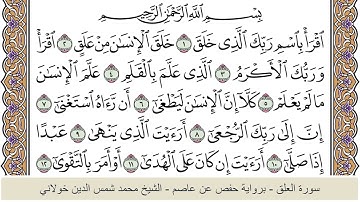 بِسْمِ اللَّهِ الرَّحْمَٰنِ الرَّحِيمِ
ٱقْرَأْ بِٱسْمِ رَبِّكَ ٱلَّذِى خَلَقَ ١ خَلَقَ ٱلْإِنسَٰنَ مِنْ عَلَقٍ ٢ ٱقْرَأْ
وَرَبُّكَ ٱلْأَكْرَمُ ٣ ٱلَّذِى عَلَّمَ بِٱلْقَلَمِ ٤ عَلَّمَ ٱلْإِنسَٰنَ
مَا لَمْ يَعْلَمْ ٥ كَلَّآ إِنَّ ٱلْإِنسَٰنَ لَيَطْغَىٰٓ ٦ أَن رَّءَاهُ ٱسْتَغْنَىٰٓ ٧
إِنَّ إِلَىٰ رَبِّكَ ٱلرُّجْعَىٰٓ ٨ أَرَءَيْتَ ٱلَّذِى يَنْهَىٰ ٩ عَبْدًا
إِذَا صَلَّىٰٓ ١٠ أَرَءَيْتَ إِن كَانَ عَلَى ٱلْهُدَىٰٓ ١١ أَوْ أَمَرَ بِٱلتَّقْوَىٰٓ ١٢
سورة العلق - برواية حفص عن عاصم - الشيخ محمد شمس الدين خولاني